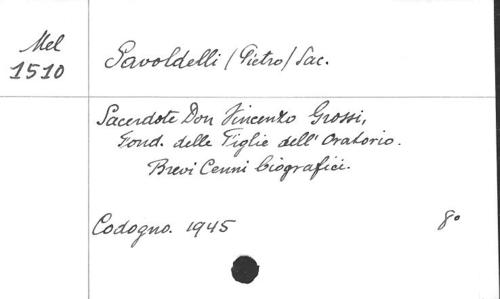 Mel
1510
Savoldelli (Pietro) Sac.
Sacerdote Don Vincenzo Grossi,
Fond. delle Figlie dell' Oratorio.
Brevi Cenni biografici.
Codogno. 1945
8°